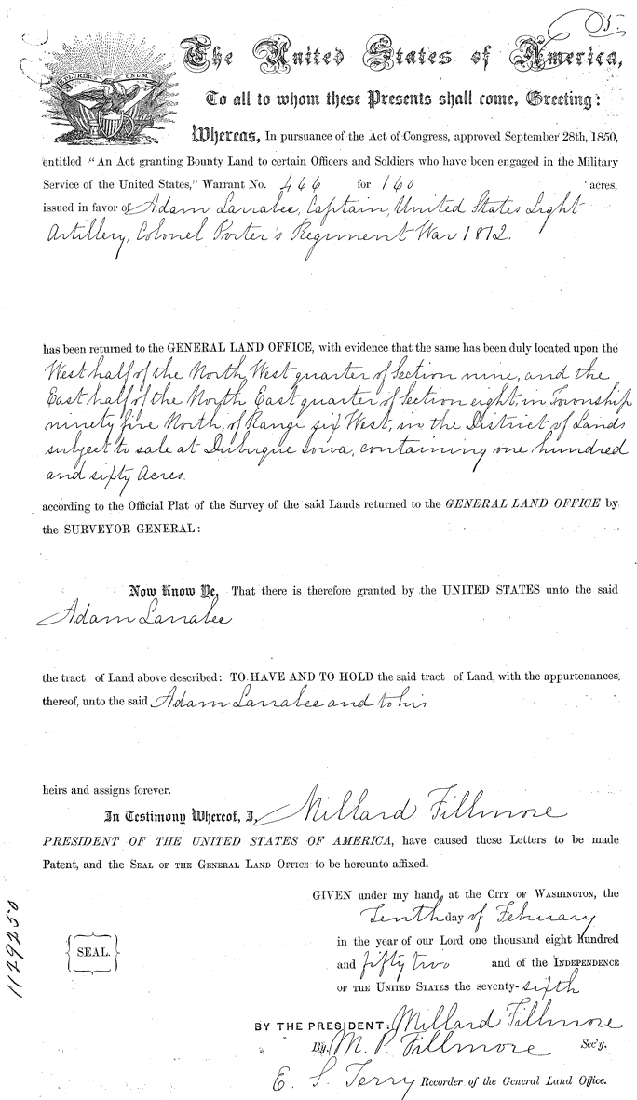 5.
E PLURIBUS UNUM
The United States of America,
To all to whom these Presents shall come, Greeting:
Whereas, In pursuance of the Act of Congress, approved September 28th, 1850,
entitled "An Act granting Bounty Land to certain Officers and Soldiers who have been engaged in the Military
Service of the United States," Warrant No. 466 for 160 acres,
issued in favor of Adam Larrabee, Captain, United States Light
Artillery, Colonel Porter's Regiment War 1812.
has been returned to the GENERAL LAND OFFICE, with evidence that the same has been duly located upon the
West half of the North West quarter of Section nine, and the
East half of the North East quarter of Section eight, in Township
ninety five North, of Range six West, in the District of Lands
subject to sale at Dubuque Iowa, containing one hundred
and sixty Acres.
according to the Official Plat of the Survey of the said Lands returned to the GENERAL LAND OFFICE by
the SURVEYOR GENERAL:
Now Know Ye, That there is therefore granted by the UNITED STATES unto the said
Adam Larrabee
the tract of Land above described: TO HAVE AND TO HOLD the said tract of Land, with the appurtenances,
thereof, unto the said Adam Larrabee and to his
heirs and assigns forever.
In Testimony Whereof, I, Millard Fillmore
PRESIDENT OF THE UNITED STATES OF AMERICA, have caused these Letters to be made
Patent, and the SEAL OF THE GENERAL LAND OFFICE to be hereunto affixed.
GIVEN under my hand, at the CITY OF WASHINGTON, the
Tenth day of February
in the year of our Lord one thousand eight hundred
and fifty two and of the INDEPENDENCE
OF THE UNITED STATES the seventy-sixth
SEAL.
BY THE PRESIDENT: Millard Fillmore
By M. P. Fillmore Sec'y.
E. S. Terry Recorder of the General Land Office.